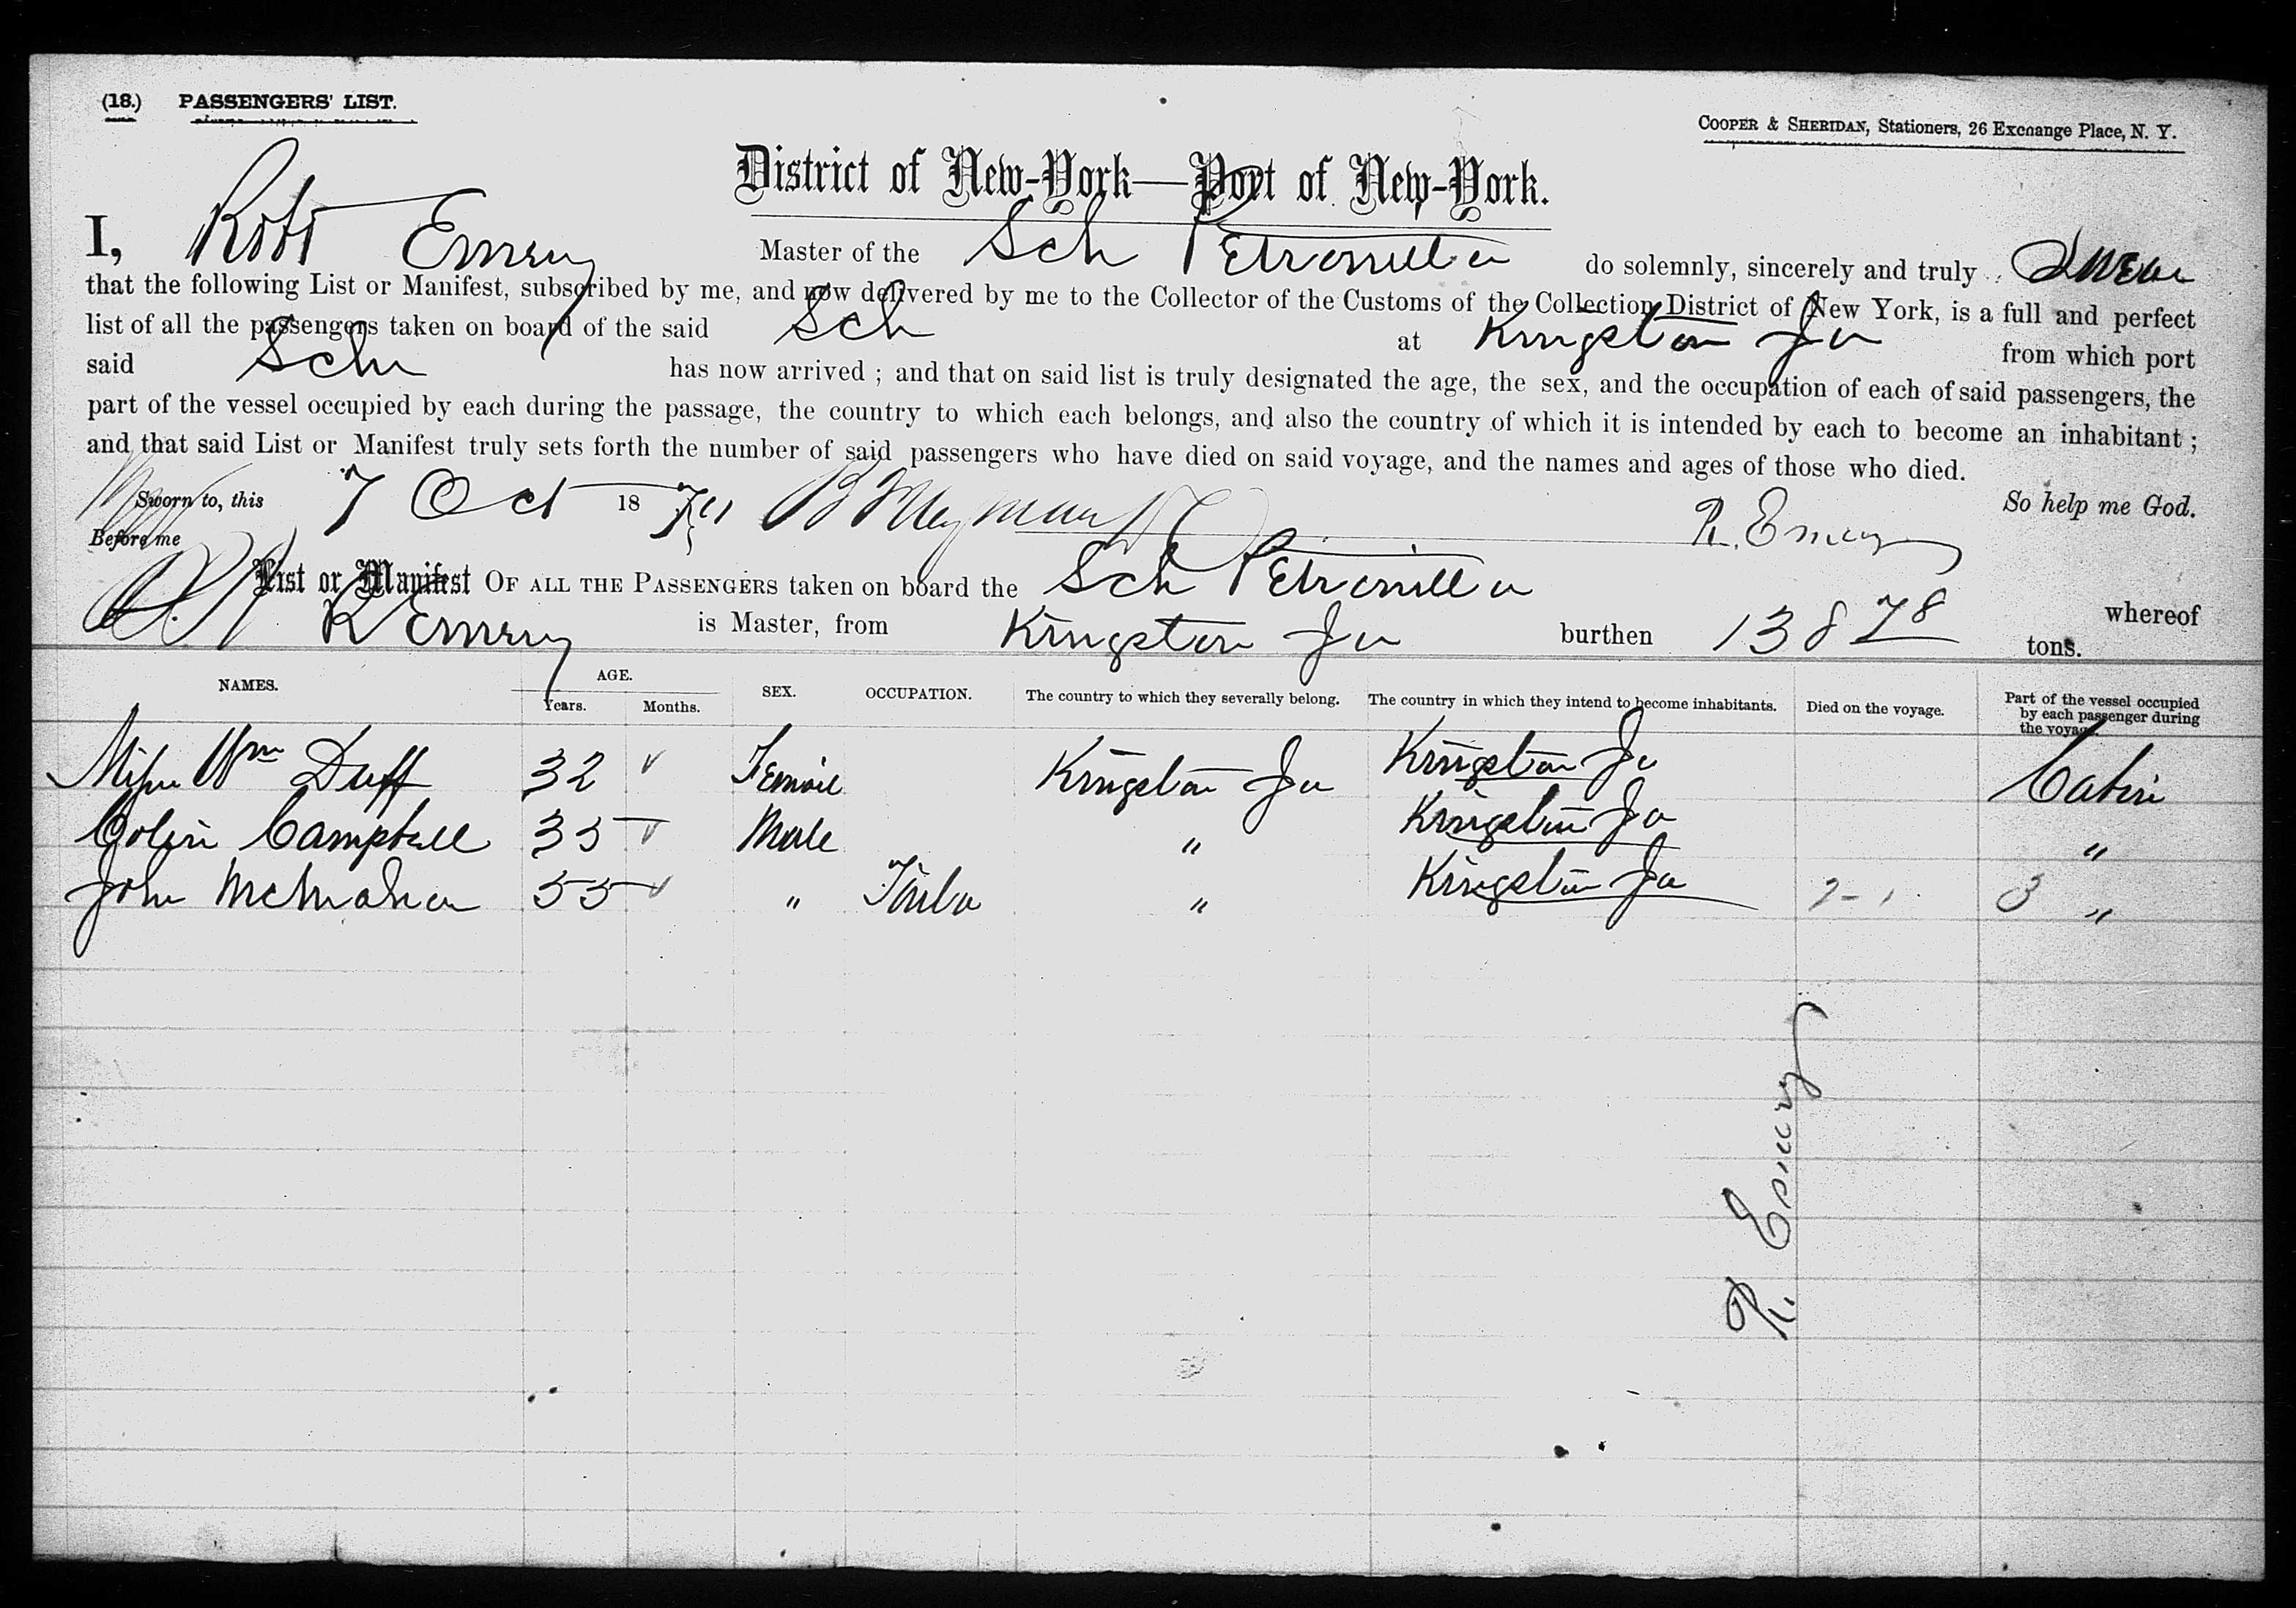 (18.) PASSENGERS' LIST.
COOPER & SHERIDAN, Stationers, 26 Exchange Place, N. Y.
District of New-York—Port of New-York.
I, Robt Emery Master of the Sch Petronilla do solemnly, sincerely and truly Swear
that the following List or Manifest, subscribed by me, and now delivered by me to the Collector of the Customs of the Collection District of New York, is a full and perfect
list of all the passengers taken on board of the said Sch at Kingston Ja from which port
said Sch has now arrived ; and that on said list is truly designated the age, the sex, and the occupation of each of said passengers, the
part of the vessel occupied by each during the passage, the country to which each belongs, and also the country of which it is intended by each to become an inhabitant ;
and that said List or Manifest truly sets forth the number of said passengers who have died on said voyage, and the names and ages of those who died.
Sworn to, this 7 Oct 18 R. Emery So help me God.
Before me
List or Manifest OF ALL THE PASSENGERS taken on board the Sch Petronilla whereof
R Emery is Master, from Kingston Ja burthen 138 78 tons.
NAMES. AGE. Years. Months. SEX. OCCUPATION. The country to which they severally belong. The country in which they intend to become inhabitants. Died on the voyage. Part of the vessel occupied by each passenger during the voyage.
Wm Duff 32 Female Kingston Ja Kingston Ja Cabin
Colin Campbell 35 Male " Kingston Ja "
John McMahon 55 " " Kingston Ja 3 "
R. Emery